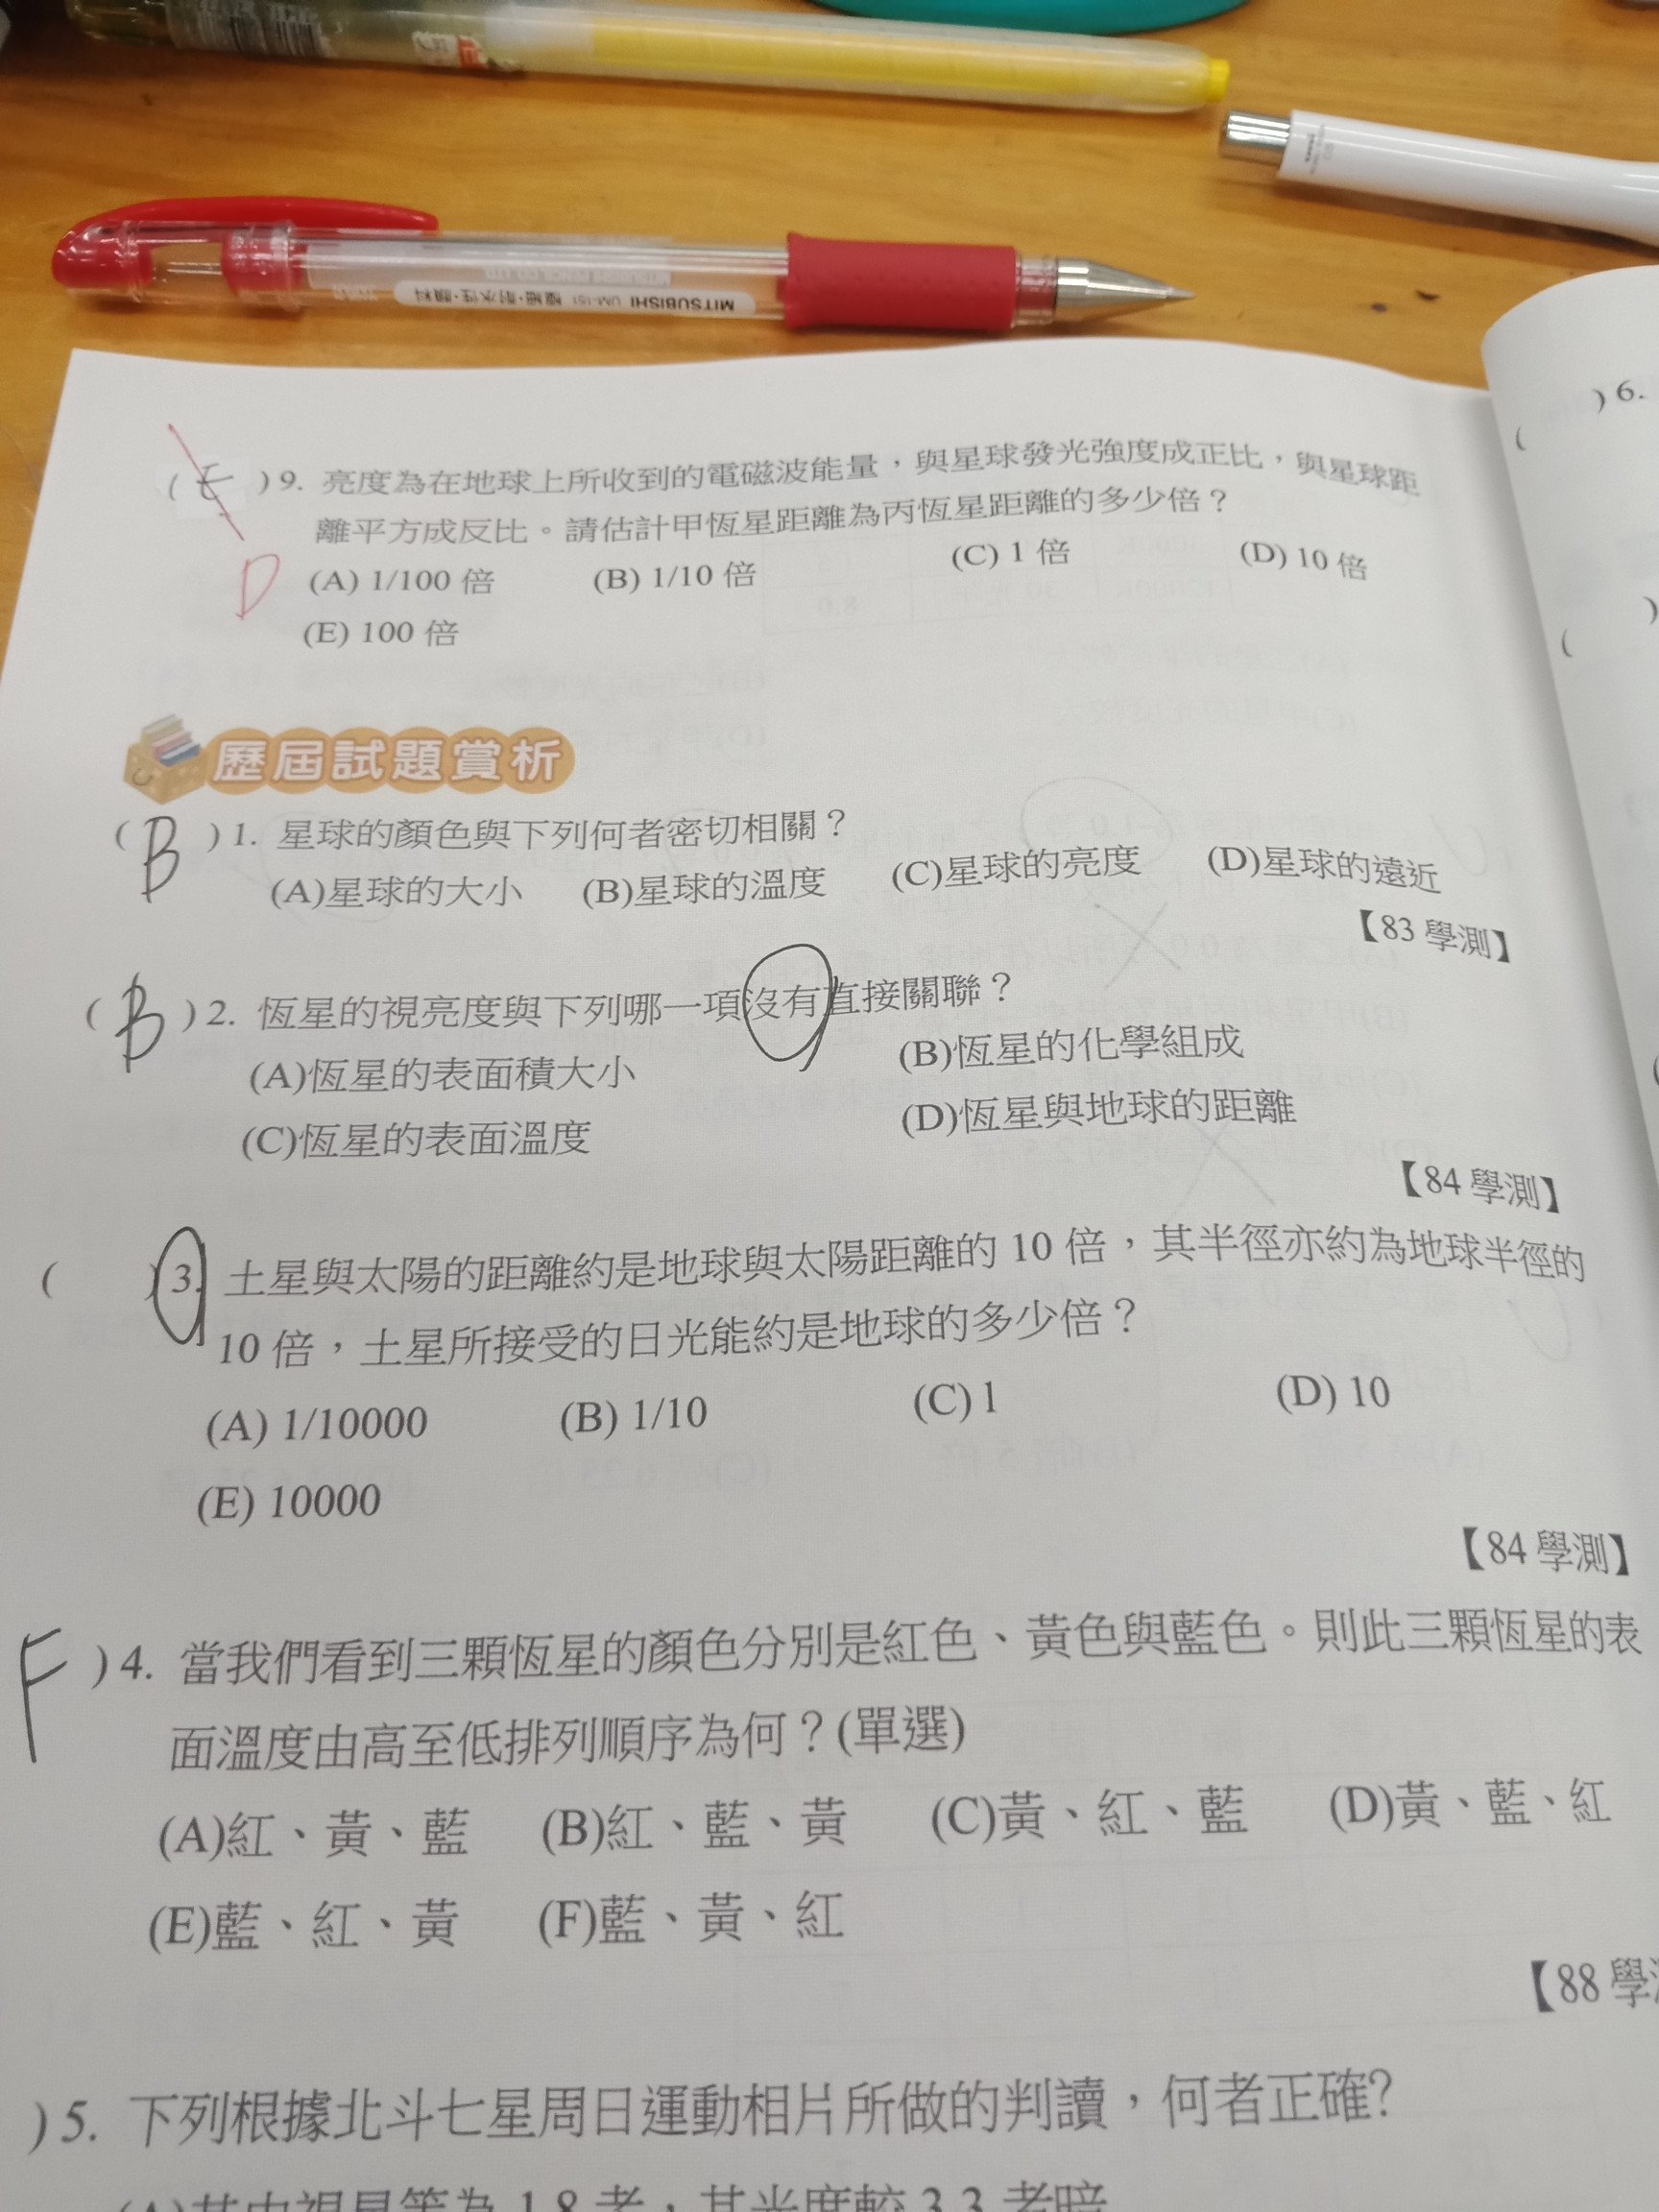 MITSUBISHI UM-151 極細・耐水性・顏料
( E ) 9. 亮度為在地球上所收到的電磁波能量，與星球發光強度成正比，與星球距
離平方成反比。請估計甲恆星距離為丙恆星距離的多少倍？
D
(A) 1/100 倍 (B) 1/10 倍 (C) 1 倍 (D) 10 倍
(E) 100 倍
歷屆試題賞析
( B ) 1. 星球的顏色與下列何者密切相關？
(A)星球的大小 (B)星球的溫度 (C)星球的亮度 (D)星球的遠近
【83 學測】
( B ) 2. 恆星的視亮度與下列哪一項沒有直接關聯？
(A)恆星的表面積大小 (B)恆星的化學組成
(C)恆星的表面溫度 (D)恆星與地球的距離
【84 學測】
( ) 3. 土星與太陽的距離約是地球與太陽距離的 10 倍，其半徑亦約為地球半徑的
10 倍，土星所接受的日光能約是地球的多少倍？
(A) 1/10000 (B) 1/10 (C) 1 (D) 10
(E) 10000
【84 學測】
F ) 4. 當我們看到三顆恆星的顏色分別是紅色、黃色與藍色。則此三顆恆星的表
面溫度由高至低排列順序為何？(單選)
(A)紅、黃、藍 (B)紅、藍、黃 (C)黃、紅、藍 (D)黃、藍、紅
(E)藍、紅、黃 (F)藍、黃、紅
【88 學
) 5. 下列根據北斗七星周日運動相片所做的判讀，何者正確?
1.8 者，其光度較 3.3 者暗
) 6.